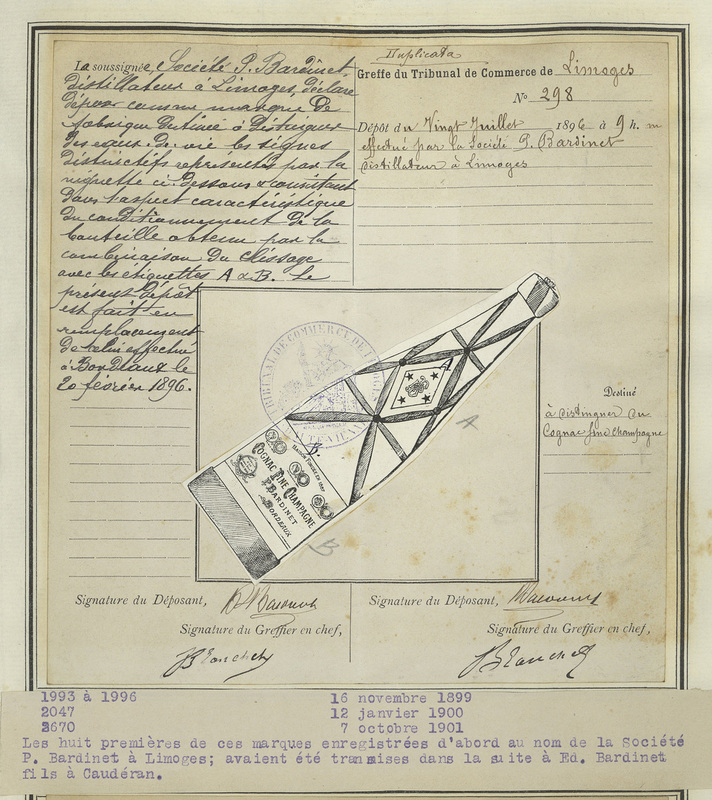 La soussignée, Société P. Bardinet,
distillateur à Limoges, déclare
déposer comme marque de
fabrique destinée à distinguer
des eaux-de-vie les signes
distinctifs représentés par la
vignette ci-dessous & consistant
dans l'aspect caractéristique
du conditionnement de la
bouteille obtenu par la
combinaison du clissage
avec les étiquettes A & B. Le
présent dépôt
est fait en
remplacement
de celui effectué
à Bordeaux le
20 février 1896.
Duplicata
Greffe du Tribunal de Commerce de Limoges
No 298
Dépôt du Vingt Juillet 1896 à 9 h. m
effectué par la Société P. Bardinet
distillateur à Limoges
TRIBUNAL DE COMMERCE DE LIMOGES
HTE VIENNE
A
B.
MAISON FONDÉE EN 1857
COGNAC FINE CHAMPAGNE
P. BARDINET
BORDEAUX
A
B
Destiné
à distinguer du
Cognac fine champagne
Signature du Déposant, P. Bardinet
Signature du Greffier en chef,
Blanchet
Signature du Déposant,
Signature du Greffier en chef,
Blanchet
1993 à 1996 16 novembre 1899
2047 12 janvier 1900
3670 7 octobre 1901
Les huit premières de ces marques enregistrées d'abord au nom de la Société
P. Bardinet à Limoges; avaient été transmises dans la suite à Ed. Bardinet
fils à Caudéran.